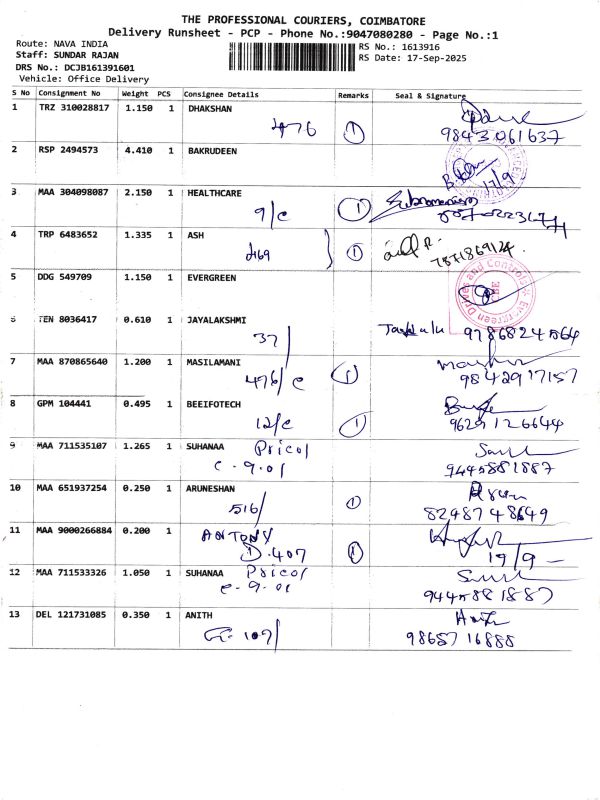 THE PROFESSIONAL COURIERS, COIMBATORE
Delivery Runsheet - PCP - Phone No.:9047080280 - Page No.:1
Route: NAVA INDIA
RS No.: 1613916
Staff: SUNDAR RAJAN
RS Date: 17-Sep-2025
DRS No.: DCJB161391601
Vehicle: Office Delivery
S No Consignment No Weight PCS Consignee Details Remarks Seal & Signature
1 TRZ 310028817 1.150 1 DHAKSHAN
476 1 98430 61637
2 RSP 2494573 4.410 1 BAKRUDEEN
17/9
3 MAA 304098087 2.150 1 HEALTHCARE
9/c 1
4 TRP 6483652 1.335 1 ASH
469 1 7871869124
5 DDG 549709 1.150 1 EVERGREEN
Evergreen Drives and Controls
CBE
6 TEN 8036417 0.610 1 JAYALAKSHMI
37/ 9786824564
7 MAA 870865640 1.200 1 MASILAMANI
476/c 1 9842917157
8 GPM 104441 0.495 1 BEEIFOTECH
12/c 1 9629126644
9 MAA 711535107 1.265 1 SUHANAA Pricol
c-9.01 9445881887
10 MAA 651937254 0.250 1 ARUNESHAN Arun
516/ 1 8248748649
11 MAA 9000266884 0.200 1 ANTONY
D.407 1 19/9-
12 MAA 711533326 1.050 1 SUHANAA Pricol
c-9.01 9445881887
13 DEL 121731085 0.350 1 ANITH Anith
107/ 9865716888